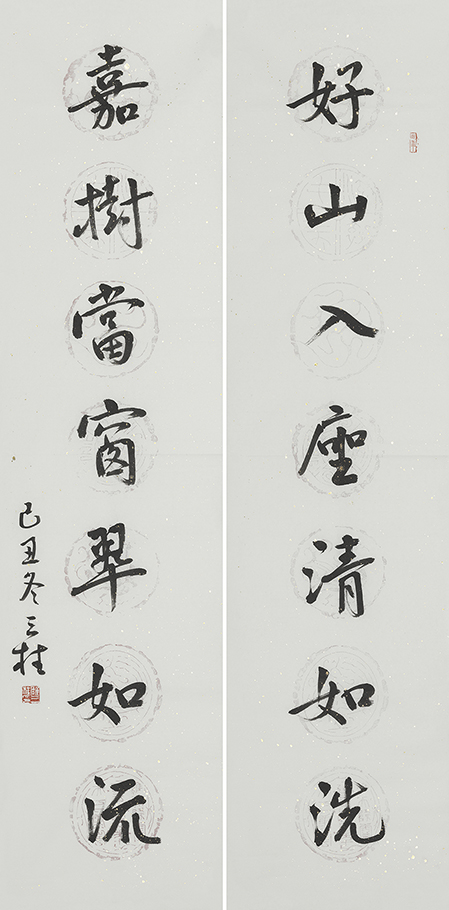 好山入座清如洗
嘉樹當窗翠如流
己丑冬三桂